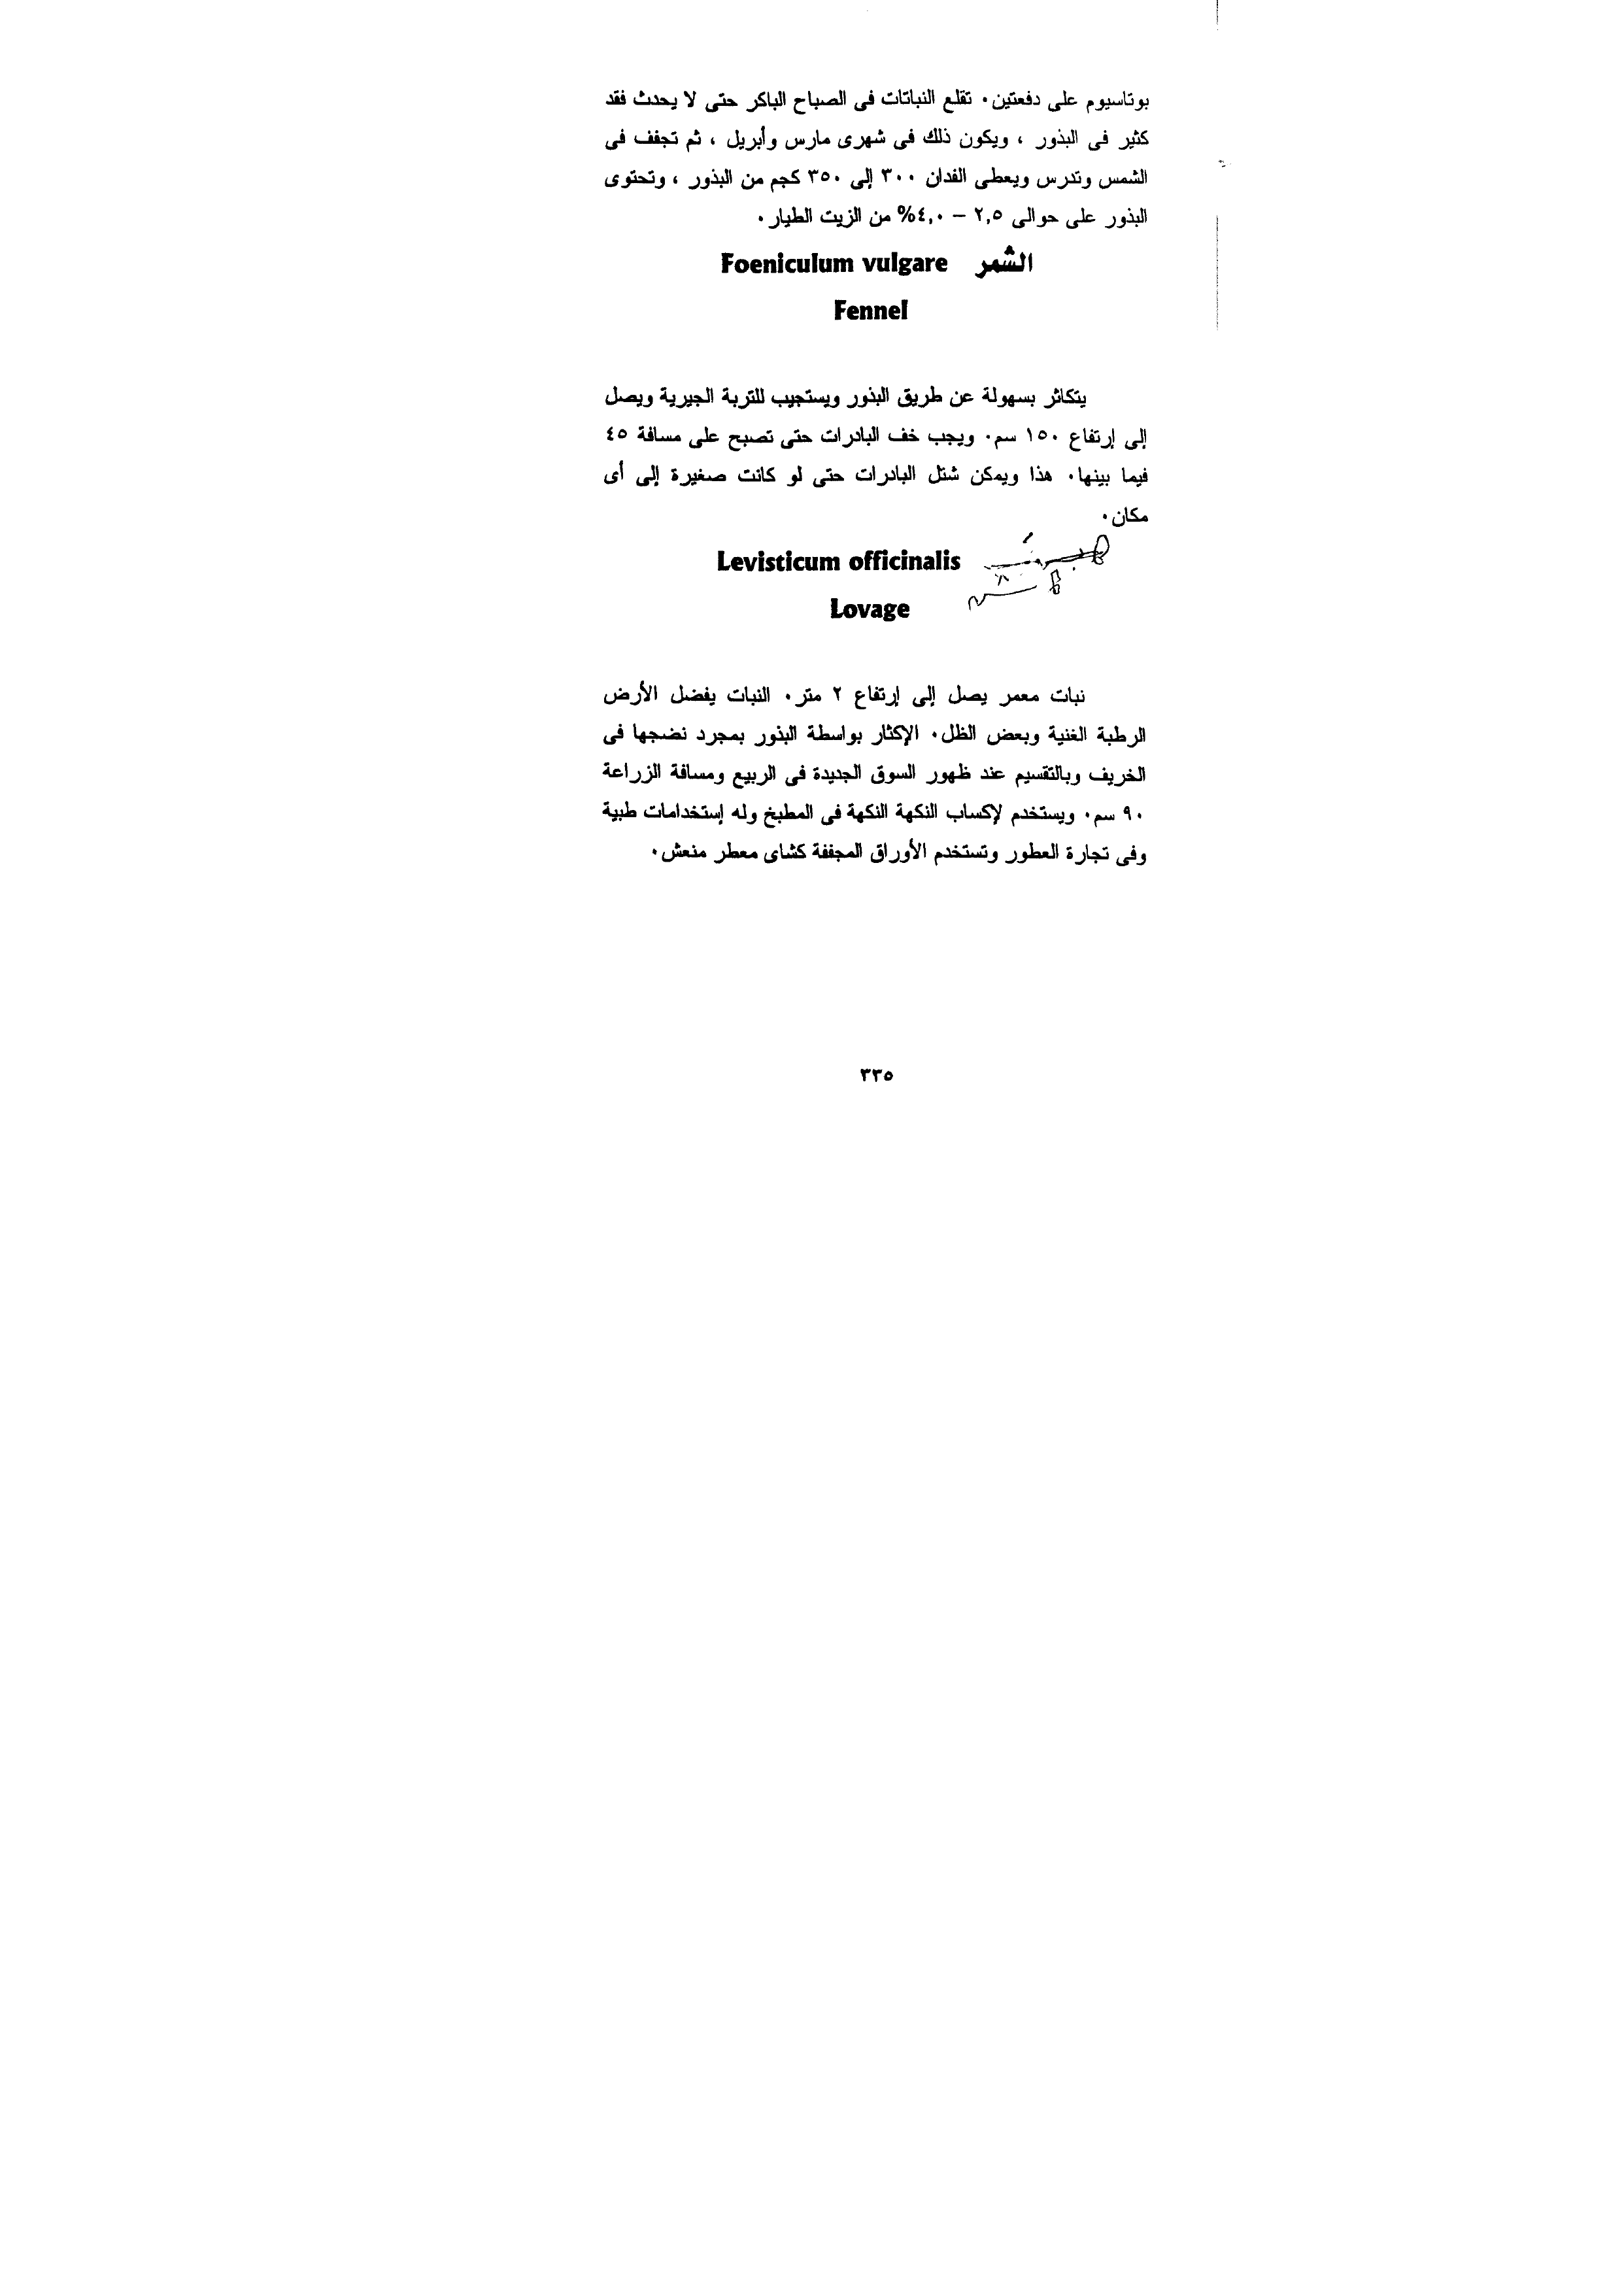 بوتاسيوم على دفعتين٠ تقلع النباتات فى الصباح الباكر حتى لا يحدث فقد
كثير فى البذور ، ويكون ذلك فى شهرى مارس وأبريل ، ثم تجفف فى
الشمس وتدرس ويعطى الفدان ٣٠٠ إلى ٣٥٠ كجم من البذور ، وتحتوى
البذور على حوالى ٢,٥ – ٤,٠% من الزيت الطيار٠
الشمر Foeniculum vulgare
Fennel
يتكاثر بسهولة عن طريق البذور ويستجيب للتربة الجيرية ويصل
إلى إرتفاع ١٥٠ سم٠ ويجب خف البادرات حتى تصبح على مسافة ٤٥
فيما بينها٠ هذا ويمكن شتل البادرات حتى لو كانت صغيرة إلى أى
مكان٠
Levisticum officinalis
Lovage
نبات معمر يصل إلى إرتفاع ٢ متر٠ النبات يفضل الأرض
الرطبة الغنية وبعض الظل٠ الإكثار بواسطة البذور بمجرد نضجها فى
الخريف وبالتقسيم عند ظهور السوق الجديدة فى الربيع ومسافة الزراعة
٩٠ سم٠ ويستخدم لإكساب النكهة النكهة فى المطبخ وله إستخدامات طبية
وفى تجارة العطور وتستخدم الأوراق المجففة كشاى معطر منعش٠
٣٣٥